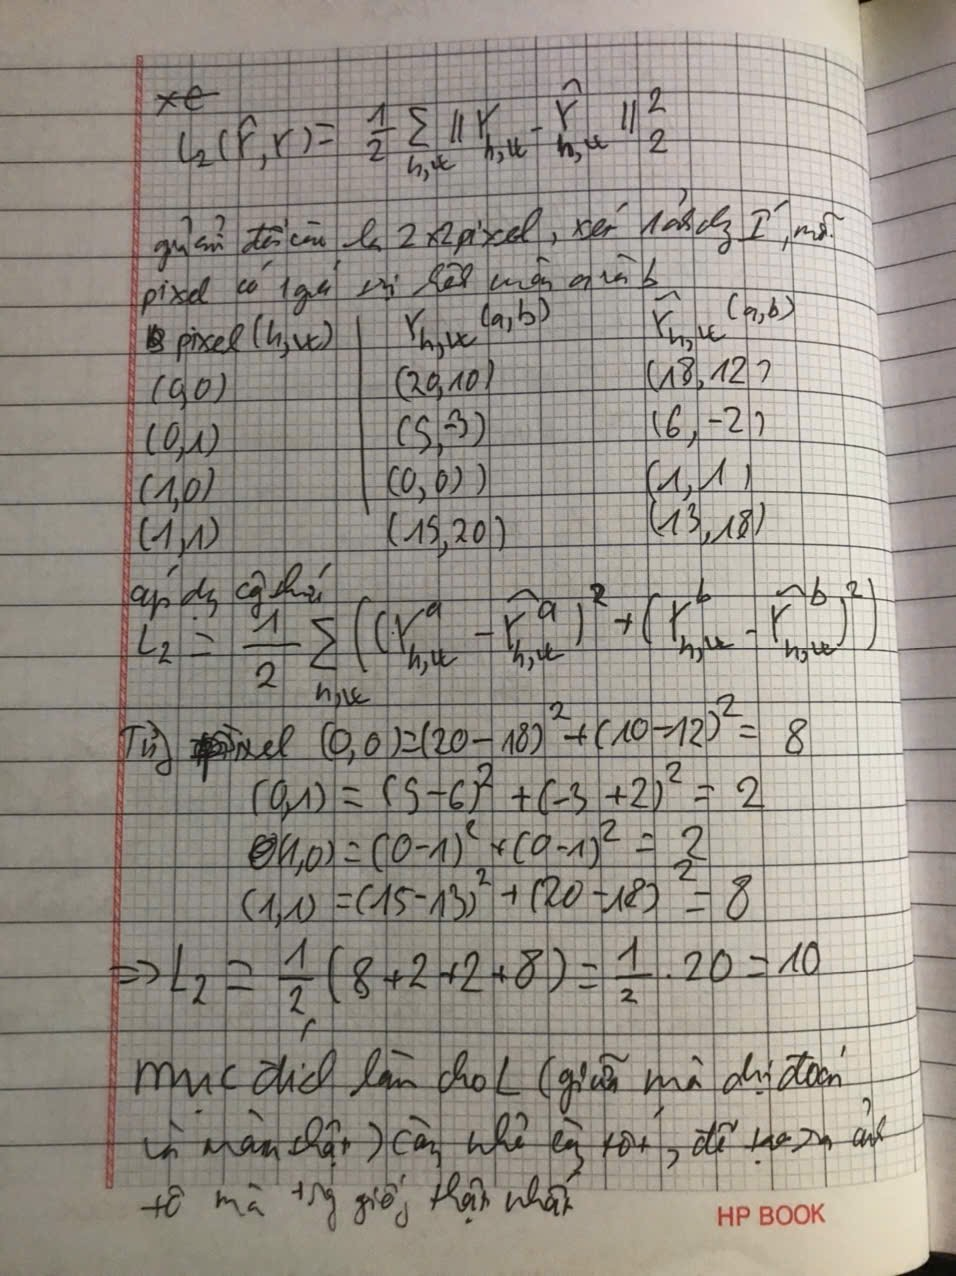 L₂(r̂,r) = 1/2 Σ_{h,w} || r_{h,w} - r̂_{h,w} ||₂²
giả sử là 2x2 pixel, xét 1 ảnh, mỗi
pixel có 1 giá trị màu a và b
pixel (h,w) r_{h,w}(a,b) r̂_{h,w}(a,b)
(0,0) (20,10) (18,12)
(0,1) (5,-3) (6,-2)
(1,0) (0,0)) (1,1)
(1,1) (15,20) (13,18)
áp dg cg thức
L₂ = 1/2 Σ_{h,w} ((r^a_{h,w} - r̂^a_{h,w})² + (r^b_{h,w} - r̂^b_{h,w})²)
Từg pixel (0,0)=(20-18)²+(10-12)² = 8
(0,1) = (5-6)² + (-3+2)² = 2
(1,0) = (0-1)² + (0-1)² = 2
(1,1) = (15-13)² + (20-18)² = 8
=> L₂ = 1/2 (8+2+2+8) = 1/2 . 20 = 10
mục đích làm cho L (giữa màu dự đoán
và màu thật) càng nhỏ càg tốt, để tạo ra ảnh
tô màu trg giốg thật nhất
HP BOOK